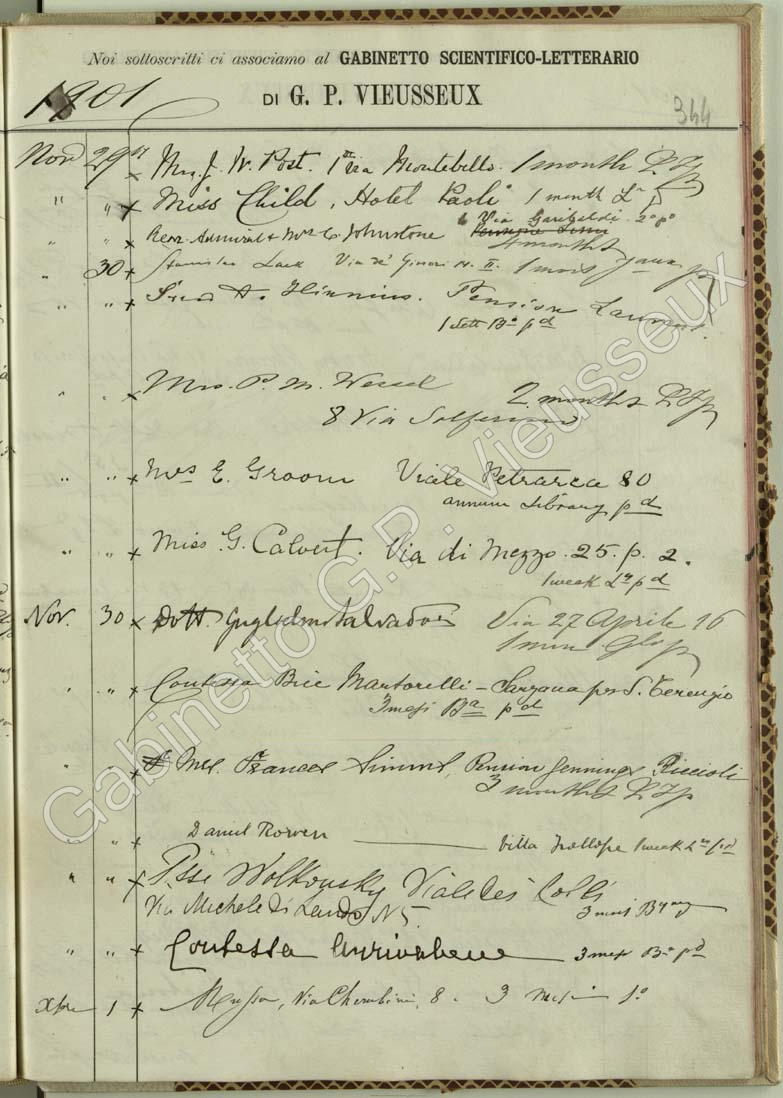 Noi sottoscritti ci associamo al GABINETTO SCIENTIFICO-LETTERARIO
DI G. P. VIEUSSEUX
1901
344
Nov 29 x Mrs. J. W. Post. 1 via Montebello. 1 month
" " x Miss Child, Hotel Paoli 1 month
" " x Rear Admiral & Mrs C Johnstone 6 Via Garibaldi 2º pº
4 months
" 30 x Stanislas Lack Via de' Ginori 14. II. 1 mois
" " x Pension Laurent.
1 Sett Bª pd
" " x Mrs. P. M. Wessel 2 months
8 Via Solferino
" " x Mrs E. Groom Viale Petrarca 80
annum Library pd
" " x Miss G. Calvert. Via di Mezzo. 25. p. 2.
1 week pd
Nov. 30 x Dott. Guglielmo Salvadori Via 27 Aprile 16
" " x Contessa Bice Martorelli - Sarzana per S. Terenzio
3 mesi Bª pd
" " x Mrs. Frances Simms, Pension Jennings Riccioli
3 months
" x Daniel Rowen Villa Trollope 1 week
" " x Psse Wolkonsky Viale dei Colli
Via Michele di Lando N 5. 3 mesi
" " x Contessa Arrivabene 3 mesi Bª pd
Xbre 1 x Via Cherubini, 8. 3 Mesi
Gabinetto G.P. Vieusseux